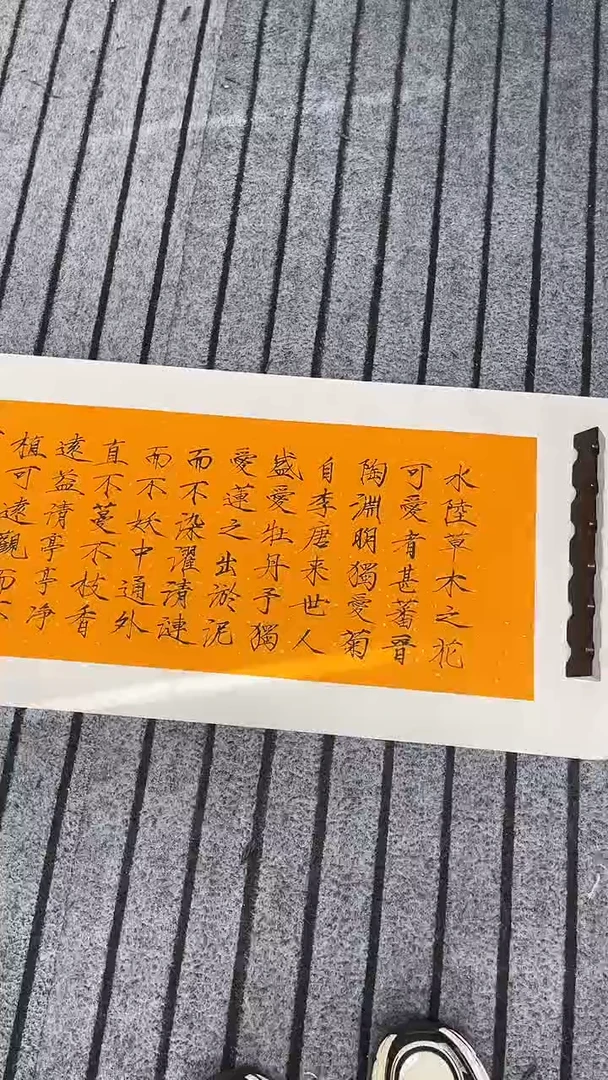 水陸草木之花
可愛者甚蕃晉
陶淵明獨愛菊
自李唐来世人
盛愛牡丹予獨
愛蓮之出淤泥
而不染濯清漣
而不妖中通外
直不蔓不枝香
遠益清亭亭净
植可遠觀而不